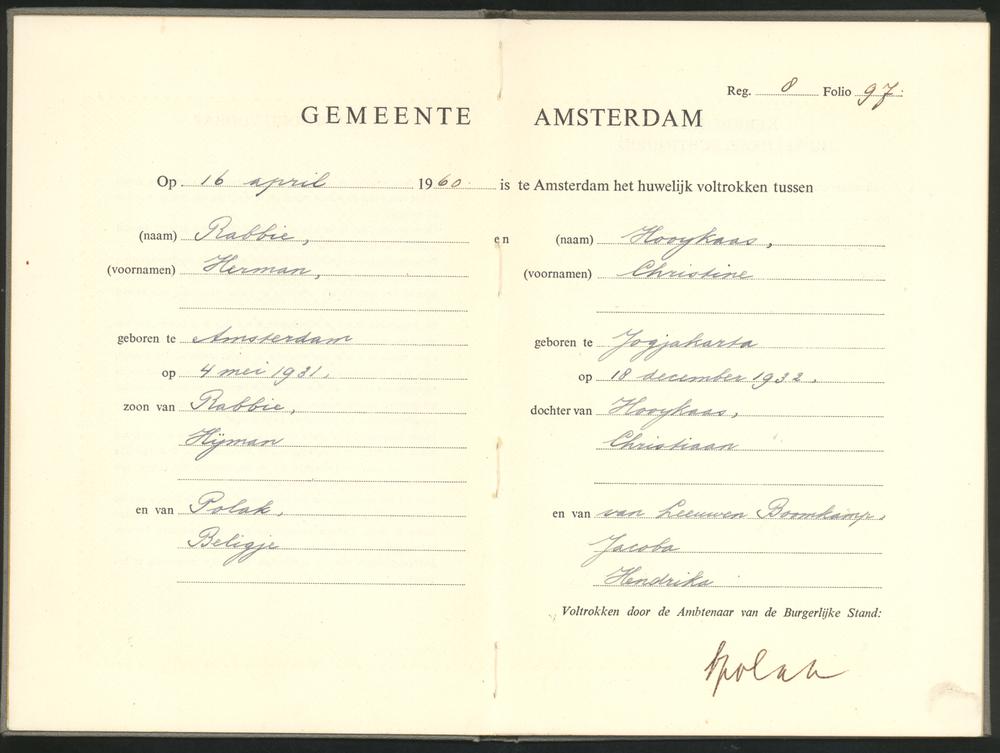 Reg. 8 Folio 97.
GEMEENTE AMSTERDAM
Op 16 april 1960 is te Amsterdam het huwelijk voltrokken tussen
(naam) Rabbie,
(voornamen) Herman,
geboren te Amsterdam
op 4 mei 1931.
zoon van Rabbie,
Hijman
en van Polak,
Beligje
en
(naam) Hooykaas,
(voornamen) Christine
geboren te Jogjakarta
op 18 december 1932.
dochter van Hooykaas,
Christiaan
en van van Leeuwen Boomkamp,
Jacoba
Hendrika
Voltrokken door de Ambtenaar van de Burgerlijke Stand: